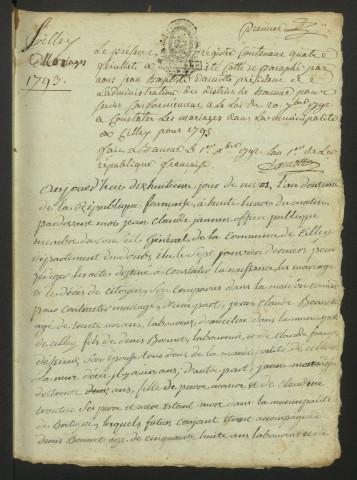 Cilley
Mariages
1793.
premier
Le présent registre contenant quatre
feuillets a été cotté et paraphé par
nous jean Baptiste président de
L'administration du district de Baume pour
servir conformément a la Loi du 20 7bre 1792
a Constater Les mariages dans La municipalité
de Cilley pour 1793.
fait a Baume le 1er xbre 1792. L'an 1er de La
république française
aujourd'huy dixhuitieme jour de nivos l'an deuxieme
de la République francaise, a huite heure du matin
pardevant moi jean claude jannin officie publique
membre du conseil Général de la Commune de Cilley
département du doubs élu le pour
rediger les actes destiné a constater la naissance, les mariage
et le décès de citoyens, son comparus dans la maison commune
pour contracter mariage, d'une part, jean Claude Bonnet
agé de trente un ans, laboureur, domicilié dans la municipalité
de cilley fils de denis Bonnet, laboureur, et de claude françoise
ses pere et tous deux de la municipalité de cilley
d'autre part, jeanne
de trente deux ans, fille de pierre et de claudine
ses pere et mere estant mort dans la municipalité
de lesquels futurs conjoint étoient accompagné de
denis Bonnet agé de cinquante huite ans laboureur